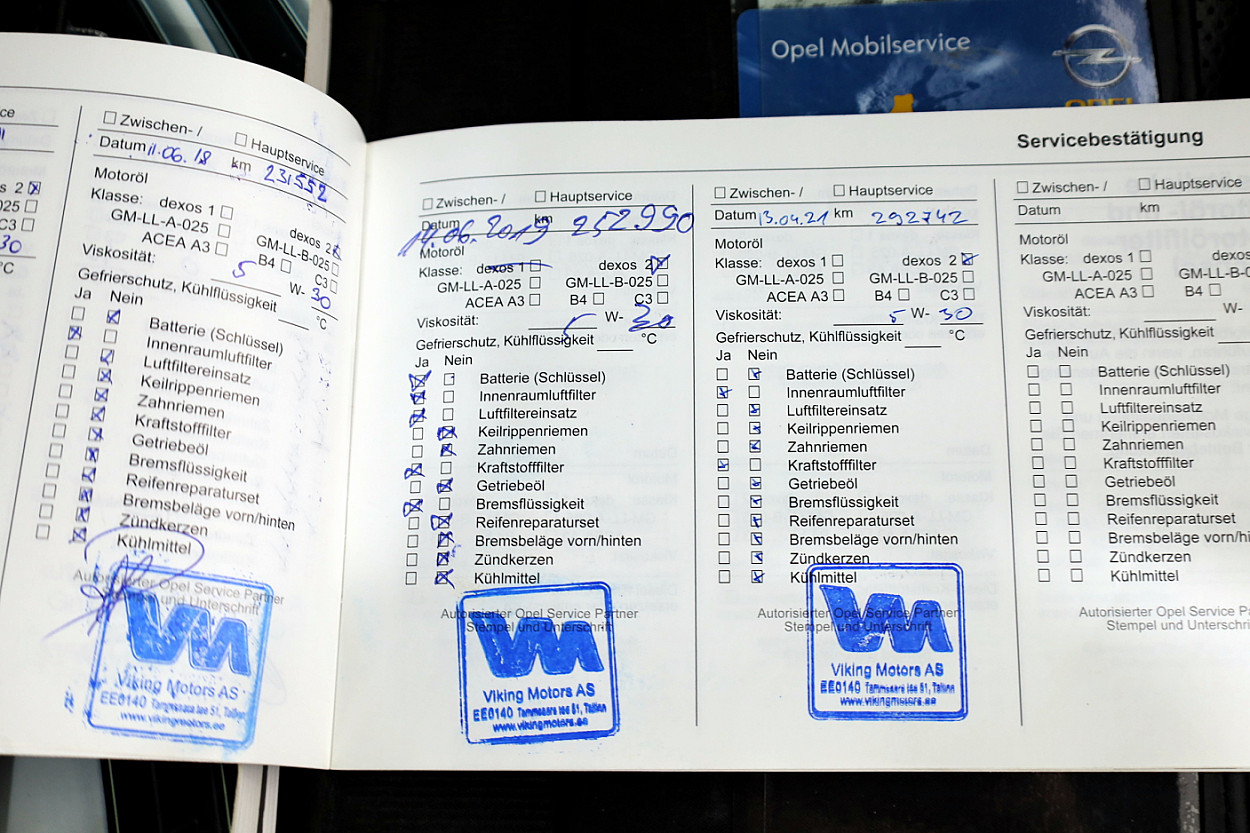 Opel Mobilservice
OPEL
Servicebestätigung
ce
s 2
025
C3
30
°C
Zwischen- / Hauptservice
Datum 11.06.18 km 231552
Motoröl
Klasse: dexos 1 dexos 2
GM-LL-A-025 GM-LL-B-025
ACEA A3 B4 C3
Viskosität: 5 W- 30
Gefrierschutz, Kühlflüssigkeit °C
Ja Nein
Batterie (Schlüssel)
Innenraumluftfilter
Luftfiltereinsatz
Keilrippenriemen
Zahnriemen
Kraftstofffilter
Getriebeöl
Bremsflüssigkeit
Reifenreparaturset
Bremsbeläge vorn/hinten
Zündkerzen
Kühlmittel
Autorisierter Opel Service Partner
Stempel und Unterschrift
Viking Motors AS
EE0140 Tammsaare tee 51, Tallinn
www.vikingmotors.ee
Zwischen- / Hauptservice
Datum 14.06.2019 km 252990
Motoröl
Klasse: dexos 1 dexos 2
GM-LL-A-025 GM-LL-B-025
ACEA A3 B4 C3
Viskosität: 5 W- 30
Gefrierschutz, Kühlflüssigkeit °C
Ja Nein
Batterie (Schlüssel)
Innenraumluftfilter
Luftfiltereinsatz
Keilrippenriemen
Zahnriemen
Kraftstofffilter
Getriebeöl
Bremsflüssigkeit
Reifenreparaturset
Bremsbeläge vorn/hinten
Zündkerzen
Kühlmittel
Autorisierter Opel Service Partner
Stempel und Unterschrift
Viking Motors AS
EE0140 Tammsaare tee 51, Tallinn
www.vikingmotors.ee
Zwischen- / Hauptservice
Datum 13.04.21 km 292742
Motoröl
Klasse: dexos 1 dexos 2
GM-LL-A-025 GM-LL-B-025
ACEA A3 B4 C3
Viskosität: 5 W- 30
Gefrierschutz, Kühlflüssigkeit °C
Ja Nein
Batterie (Schlüssel)
Innenraumluftfilter
Luftfiltereinsatz
Keilrippenriemen
Zahnriemen
Kraftstofffilter
Getriebeöl
Bremsflüssigkeit
Reifenreparaturset
Bremsbeläge vorn/hinten
Zündkerzen
Kühlmittel
Autorisierter Opel Service Partner
Stempel und Unterschrift
Viking Motors AS
EE0140 Tammsaare tee 51, Tallinn
www.vikingmotors.ee
Zwischen- / Hauptservice
Datum km
Motoröl
Klasse: dexos 1 dexos
GM-LL-A-025 GM-LL-B-0
ACEA A3 B4
Viskosität: W-
Gefrierschutz, Kühlflüssigkeit
Ja Nein
Batterie (Schlüssel)
Innenraumluftfilter
Luftfiltereinsatz
Keilrippenriemen
Zahnriemen
Kraftstofffilter
Getriebeöl
Bremsflüssigkeit
Reifenreparaturset
Bremsbeläge vorn/hi
Zündkerzen
Kühlmittel
Autorisierter Opel Service Pa
Stempel und Unterschri